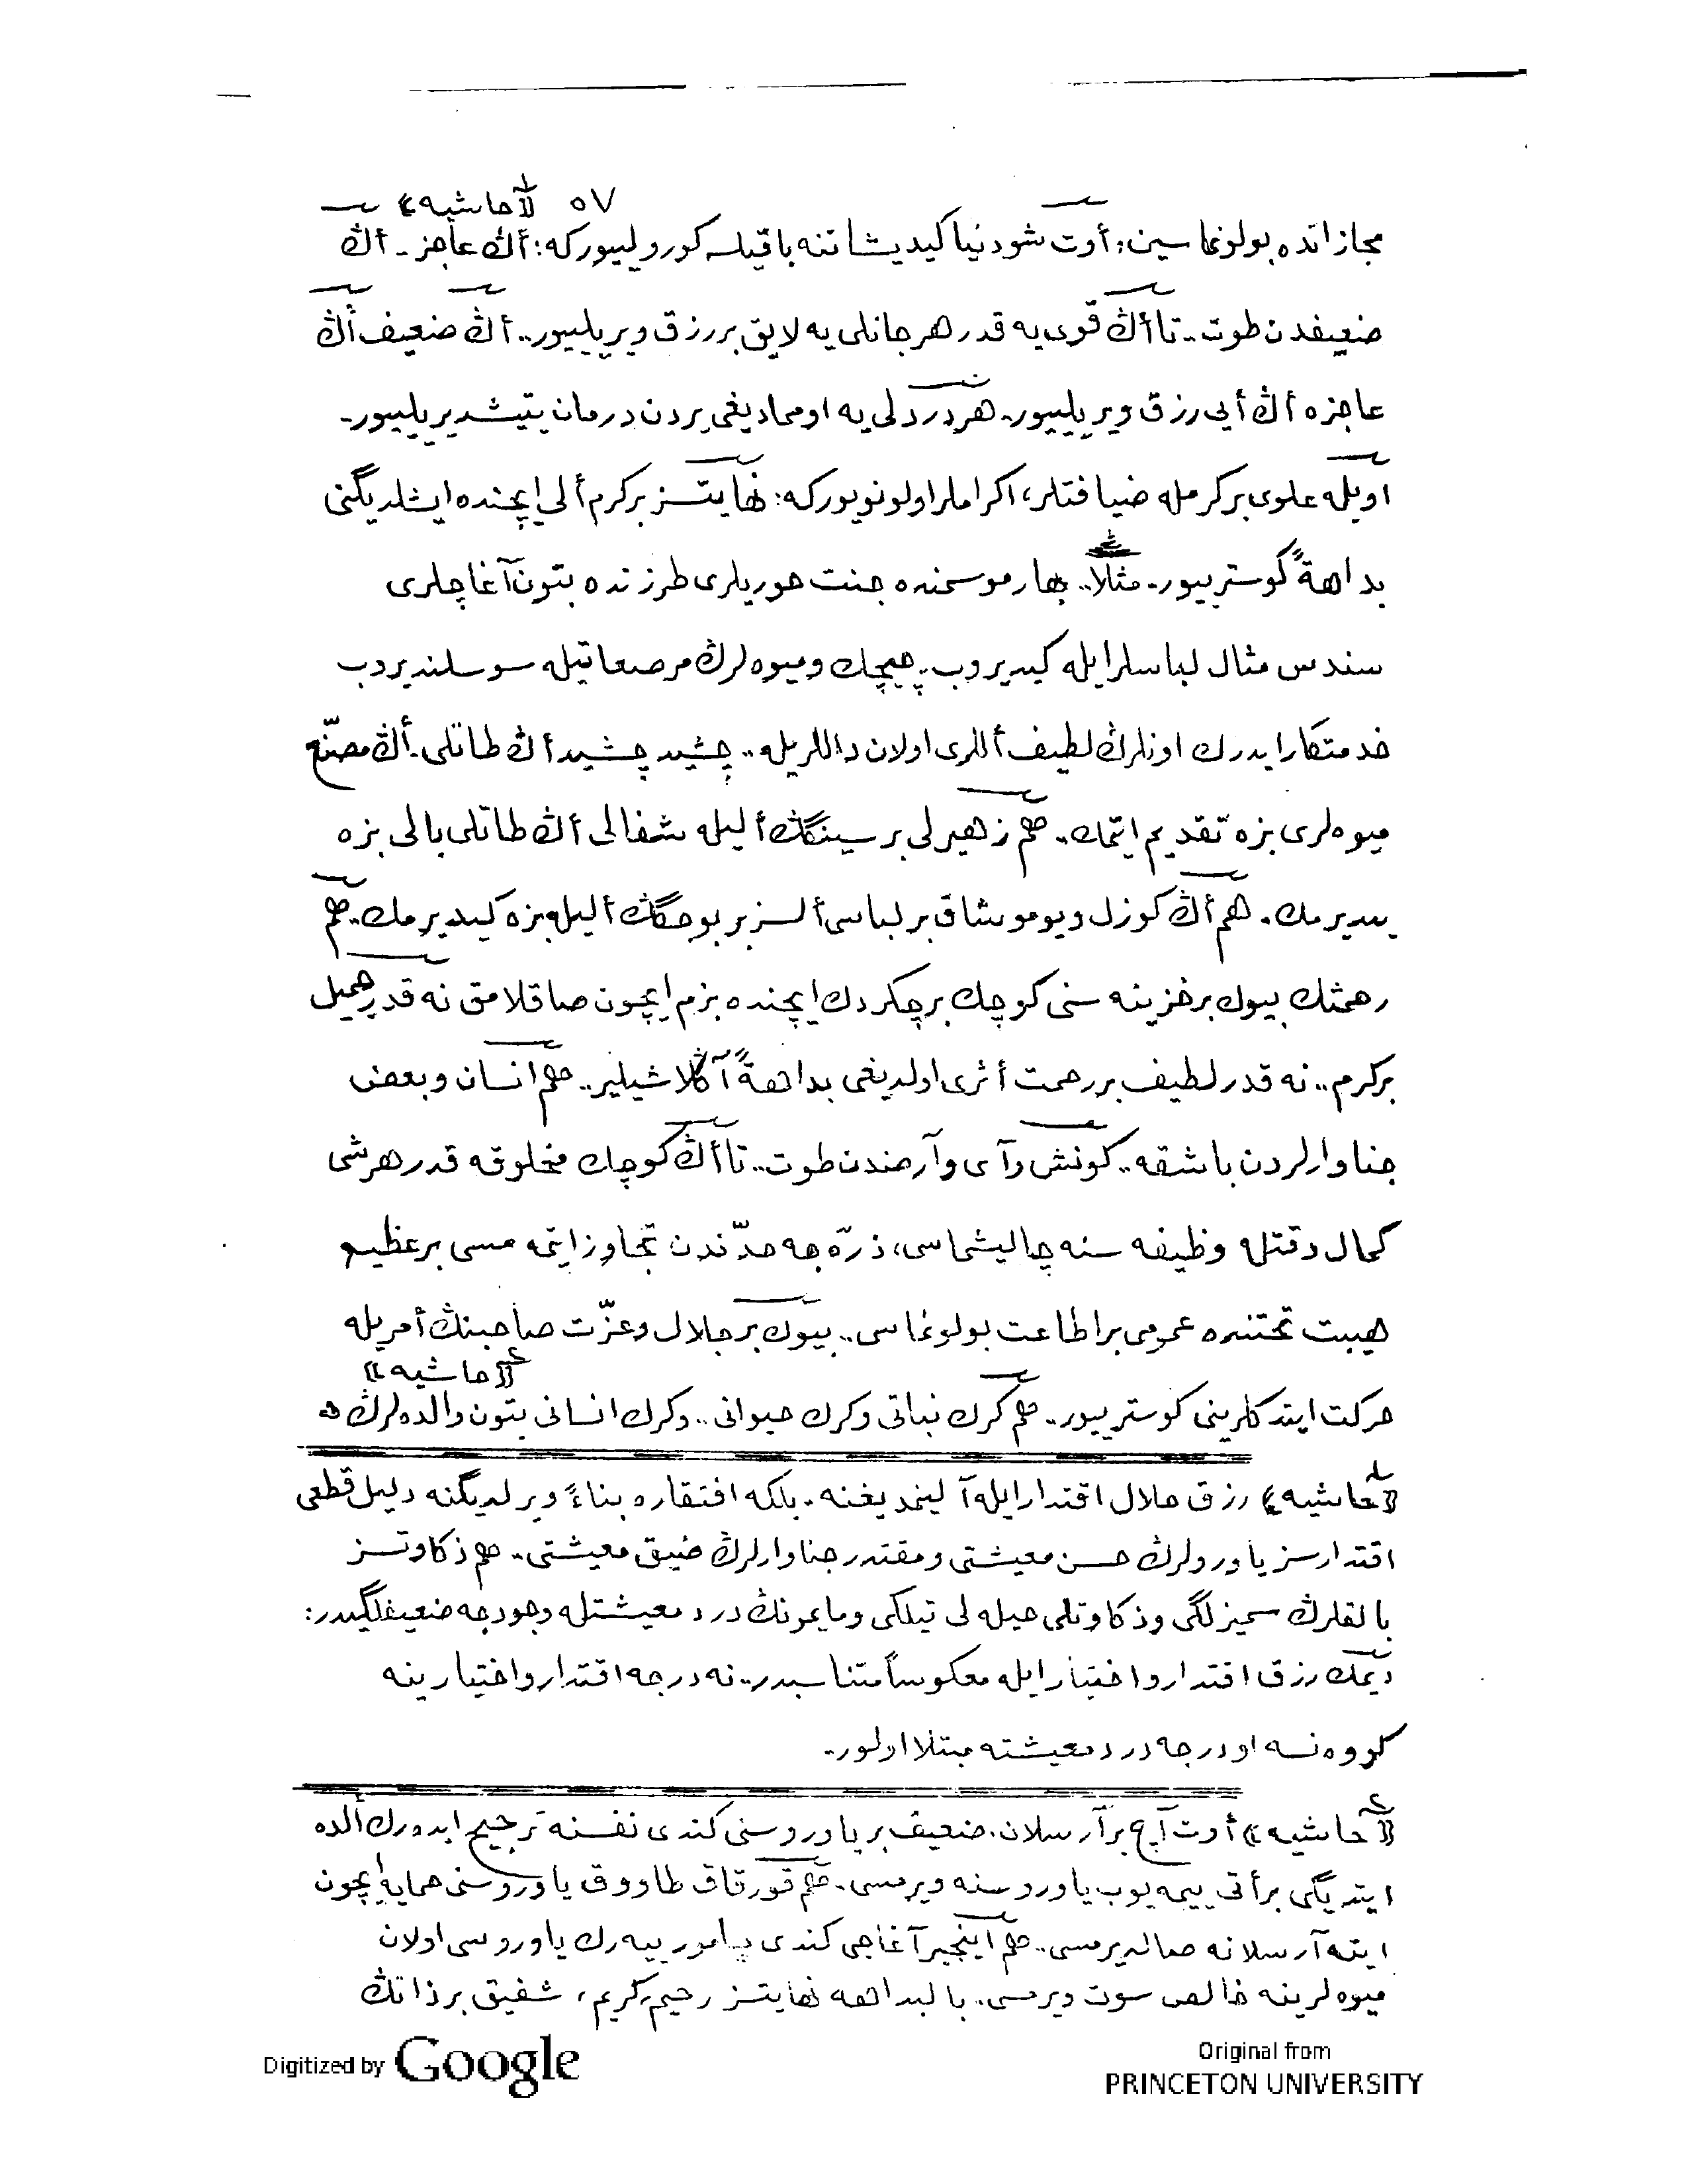 ٥٧ ﴿حاشيه١﴾
مجازاتده بولونماسين؛ أوت شو دنيا كيديشاتنه باقيلسه كورولييوركه: أڭ عاجز ـ أڭ
ضعيفدن طوت.. تا أڭ قوى يه قدر هر جانلى يه لايق بر رزق ويريلييور.. أڭ ضعيف أڭ
عاجزه أڭ أيى رزق ويريلييور.. هر دردلى يه اومماديغى يردن درمان يتيشديريلييور..
اويله علوى بر كرمله ضيافتلر، اكراملر اولونويوركه: نهايتسز بر كرم ألى ايچنده ايشلديگنى
بداهةً كوسترييور.. مثلا.. بهار موسمنده جنت حوريلرى طرزنده بتون آغاچلرى
سندس مثال لباسلر ايله كيديروب.. چيچك و ميوه لرڭ مرصعاتيله سوسلنديروب
خدمتكار ايدرك اونلرڭ لطيف أللرى اولان داللريله.. چشيد چشيد أڭ طاتلى.. أڭ مصنّع
ميوه لرى بزه تقديم ايتمك.. هم زهيرلى بر سينگڭ أليله شفالى أڭ طاتلى بالى بزه
يديرمك.. هم أڭ كوزل و يوموشاق بر لباسى ألسز بر بوجگڭ أليله بزه كيديرمك.. هم
رحمتك بيوك بر خزينه سنى كوچك بر چكردك ايچنده بزم ايچون صاقلامق نه قدر جميل
بر كرم.. نه قدر لطيف بر رحمت أثرى اولديغى بداهةً آڭلاشيلير.. هم انسان و بعض
جناوارلردن باشقه.. كونش و آى و آرضدن طوت.. تا أڭ كوچك مخلوقه قدر هر شى
كمال دقتله وظيفه سنه چاليشماسى، ذرّه جه حدّندن تجاوز ايتمه مسى بر عظيم
هيبت تحتنده عمومى بر اطاعت بولونماسى.. بيوك بر جلال و عزّت صاحبنڭ أمريله
﴿حاشيه٢﴾
حركت ايتدكلرينى كوسترييور.. هم كرك نباتى و كرك حيوانى.. و كرك انسانى بتون والده لرڭ
﴿حاشيه١﴾ رزق حلال اقتدار ايله آلينمديغنه.. بلكه افتقاره بناءً ويرلديگنه دليل قطعى
اقتدارسز ياورولرڭ حسن معيشتى و مقتدر جناوارلرڭ ضيق معيشتى.. هم ذكاوتسز
بالقلرڭ سميزلگى و ذكاوتلى حيله لى تيلكى و مايمونڭ درد معيشتله وجودجه ضعيفلگيدر:
ديمك رزق اقتدار و اختيار ايله معكوساً متناسبدر.. نه درجه اقتدار و اختيارينه
كووه نسه او درجه درد معيشته مبتلا اولور..
﴿حاشيه٢﴾ أوت آچ بر آرسلان. ضعيف بر ياوروسنى كندى نفسنه ترجيح ايده رك ألده
ايتديگى بر أتى ييمه يوب ياوروسنه ويرمسى.. هم قورقاق طاووق ياوروسنى حمايه ايچون
ايته آرسلانه صالديرمسى.. هم اينجير آغاجى كندى چامور ييه رك ياوروسى اولان
ميوه لرينه خالص سوت ويرمسى. بالبداهه نهايتسز رحيم، كريم، شفيق بر ذاتڭ
Digitized by Google
Original from
PRINCETON UNIVERSITY